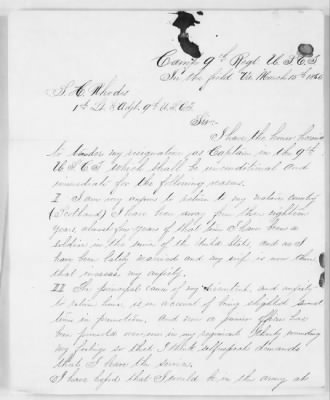 Camp 9th Regt U.S.C.T
In the field Va March 15th 186
S. H. Rhodes
1st Lt & Adjt. 9th U.S.C.T.
Sir.
I have the honor
to tender my resignation as Captain in the 9th
U.S.C.T which shall be unconditional and
immediate for the following reasons.
I I am very anxious to return to my native country
(Scotland) I have been away from there eighteen
years, almost four years of that time I have been a
soldier in the service of the United States, and as I
have been lately married and my wife is now there
that increases my anxiety.
II The principal cause of my discontent, and anxiety
to return home is on account of being slighted several
times in promotion. And now a junior officer has
been promoted over me in my regiment thereby wounding
my feelings so that I think self respect demands
that I leave the service.
I have hoped that I would be in the army at